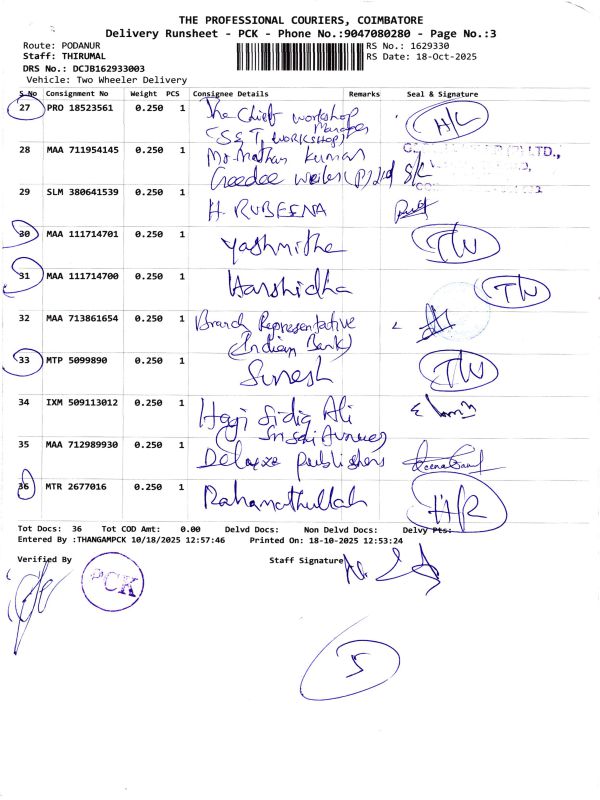 THE PROFESSIONAL COURIERS, COIMBATORE
Delivery Runsheet - PCK - Phone No.:9047080280 - Page No.:3
Route: PODANUR RS No.: 1629330
Staff: THIRUMAL RS Date: 18-Oct-2025
DRS No.: DCJB162933003
Vehicle: Two Wheeler Delivery
S.No Consignment No Weight PCS Consignee Details Remarks Seal & Signature
27 PRO 18523561 0.250 1 The Chief workshop Manager H/L
(S&T, WORKSHOP)
28 MAA 711954145 0.250 1 Mr. Mathan Kumar
Creedee (P) Ltd S/L (P) LTD.,
29 SLM 380641539 0.250 1 H. RUBEENA
30 MAA 111714701 0.250 1 Yashmitha TW
31 MAA 111714700 0.250 1 Harshidha TW
32 MAA 713861654 0.250 1 Branch Representative
(Indian Bank)
33 MTP 5099890 0.250 1 Suresh TW
34 IXM 509113012 0.250 1 Haji Sidiq Ali
35 MAA 712989930 0.250 1 Deluxe publishers
36 MTR 2677016 0.250 1 Rahamathullah H/R
Tot Docs: 36 Tot COD Amt: 0.00 Delvd Docs: Non Delvd Docs: Delvy Pts:
Entered By :THANGAMPCK 10/18/2025 12:57:46 Printed On: 18-10-2025 12:53:24
Verified By Staff Signature
PCK
5